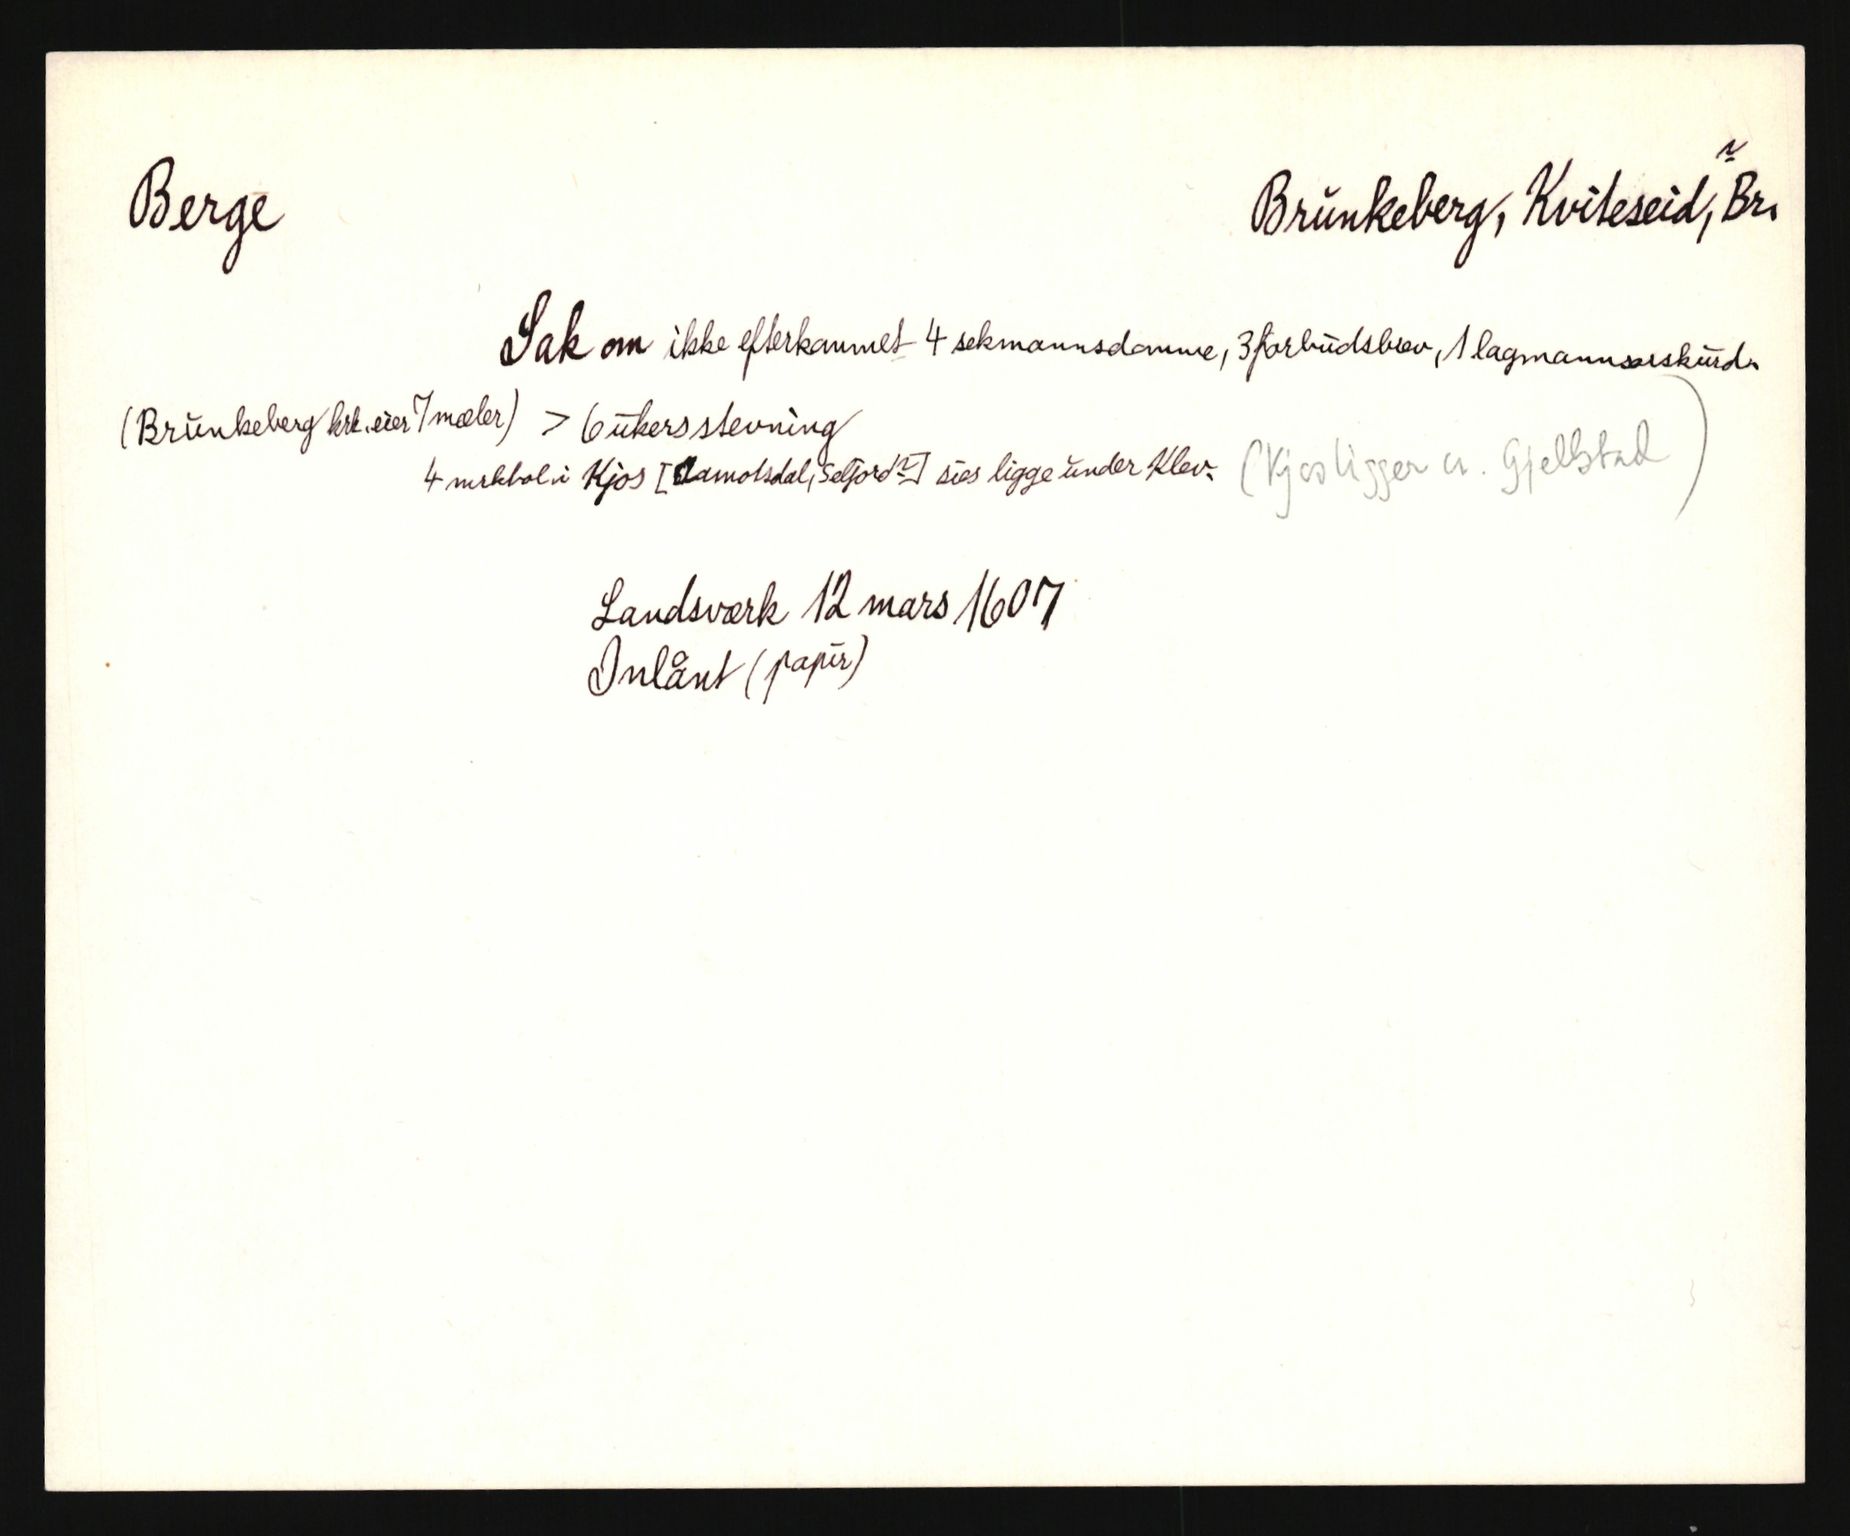 Berge
Brunkeberg, Kviteseid, Br. ~
Sak om ikke efterkommet 4 seksmannsdomme, 3 forbudsbrev, 1 lagmannsorskurd.
(Brunkeberg krk. eier 7 mæler) > 6 ukers stevning
4 mrkbol i Kjos [Åmotsdal, Seljord ~] sies ligge under Klev. (Kjos ligger u. Gjellstad)
Landsværk 12 mars 1607
Inlånt (papir)